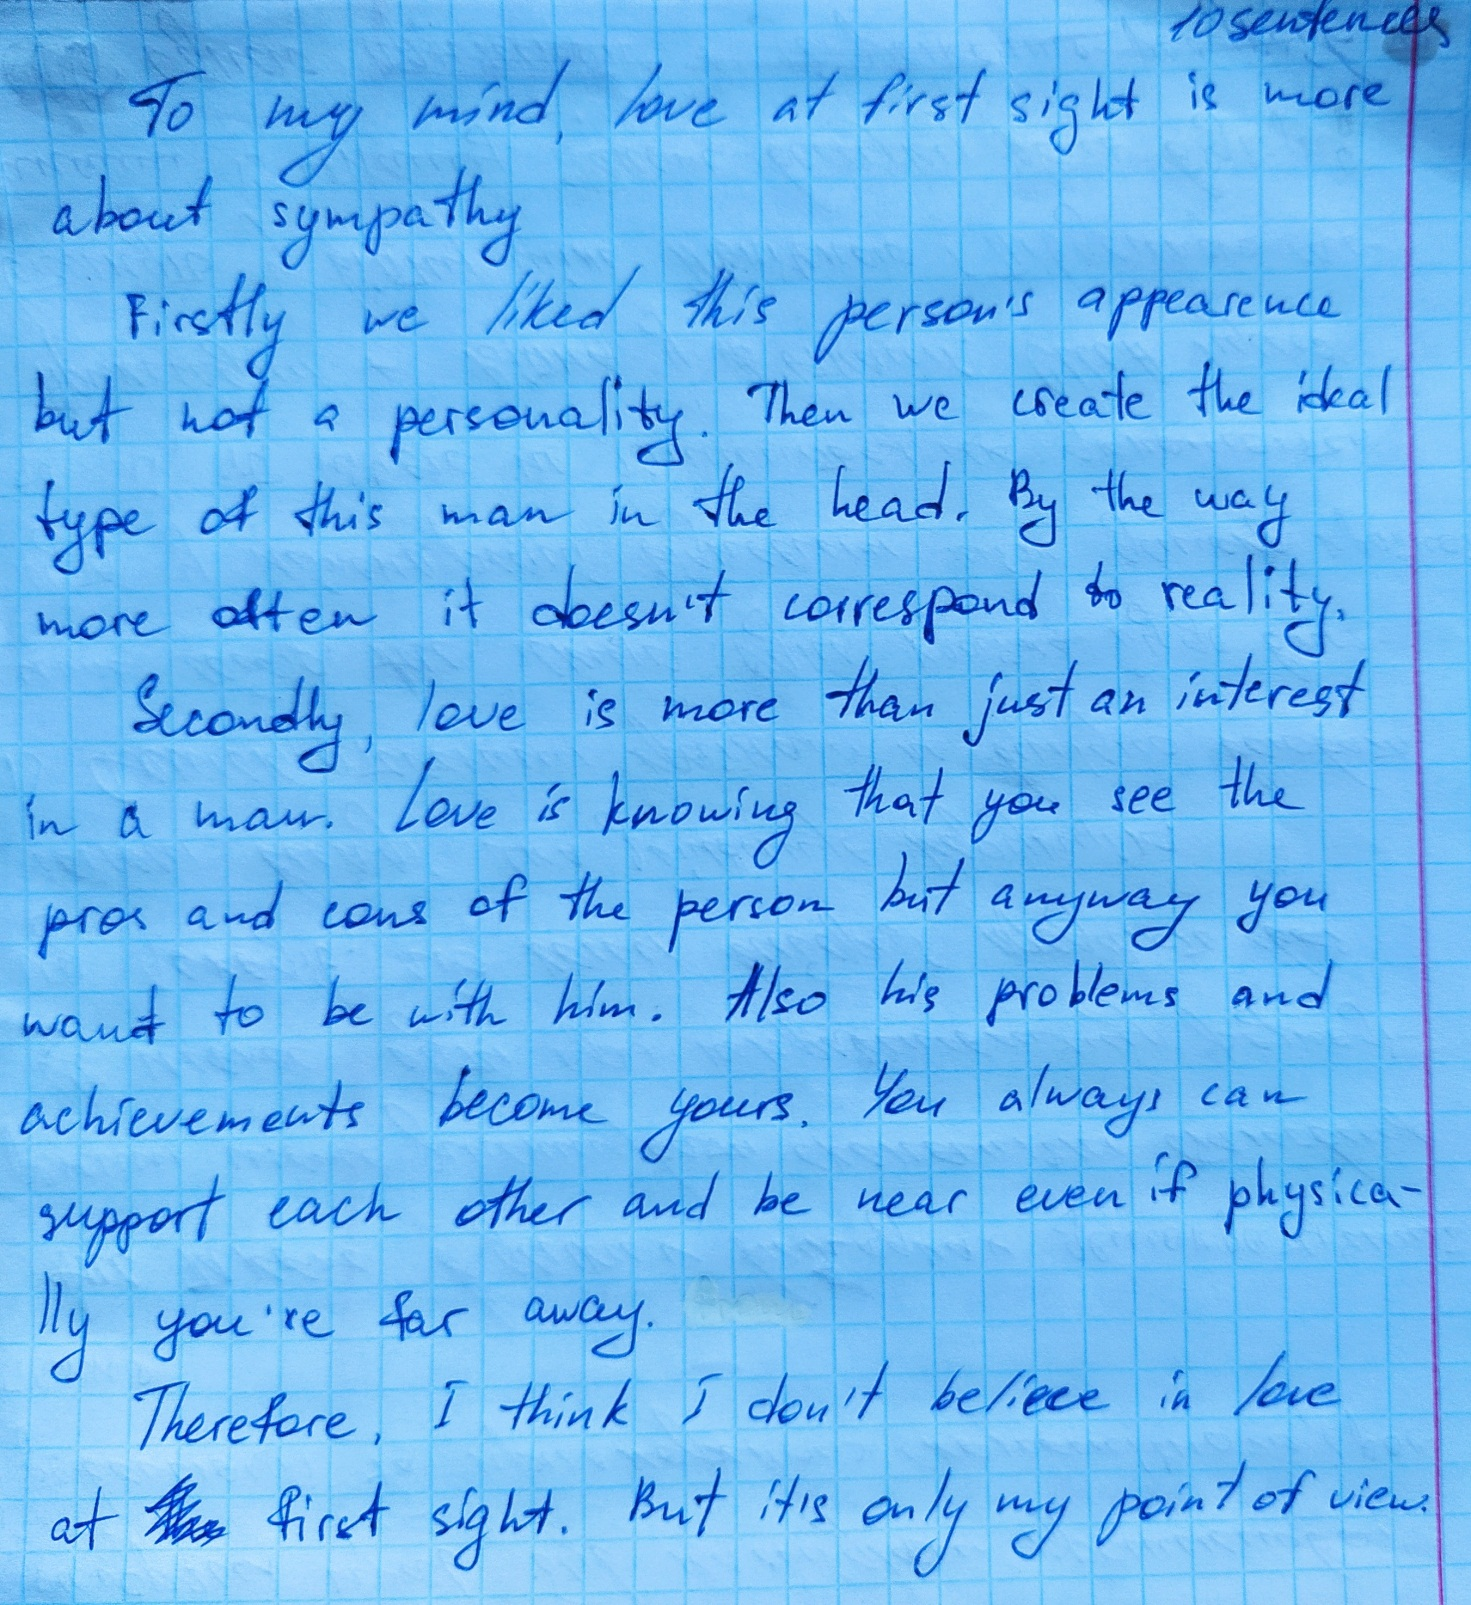 10 sentences
To my mind, love at first sight is more
about sympathy
Firstly we liked this person's appearence
but not a personality. Then we create the ideal
type of this man in the head. By the way
more often it doesn't correspond to reality.
Secondly, love is more than just an interest
in a man. Love is knowing that you see the
pros and cons of the person but anyway you
want to be with him. Also his problems and
achievements become yours. You always can
support each other and be near even if physica-
lly you're far away.
Therefore, I think I don't believe in love
at first sight. But it's only my point of view.